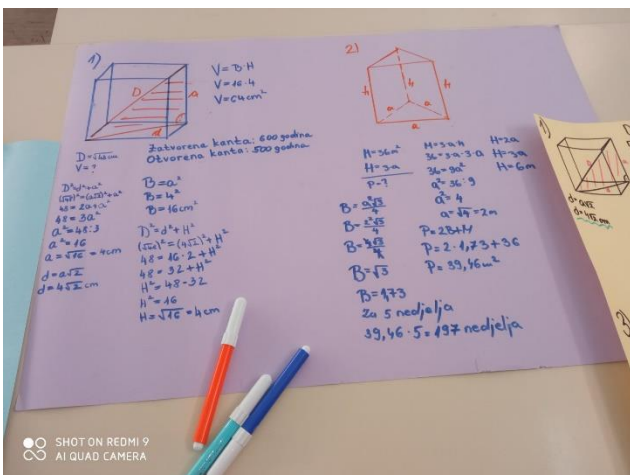 1)
D
a
d
a
V = B·H
V = 16·4
V = 64cm²
Zatvorena kanta: 600 godina
Otvorena kanta: 500 godina
D = √48 cm
V = ?
D² = d² + a²
(√48)² = (a√2)² + a²
48 = 2a + a²
48 = 3a²
a² = 48:3
a² = 16
a = √16 = 4cm
d = a√2
d = 4√2 cm
B = a²
B = 4²
B = 16cm²
D² = d² + H²
(√48)² = (4√2)² + H²
48 = 16·2 + H²
48 = 32 + H²
H² = 48-32
H² = 16
H = √16 = 4cm
2)
h
h
h
a
a
a
M = 36m²
H = 3a
P = ?
B = a²√3/4
B = 2²√3/4
B = 4√3/4
B = √3
B = 1,73
M = 3·a·H
36 = 3·a·3·a
36 = 9a²
a² = 36:9
a² = 4
a = √4 = 2m
P = 2B+M
P = 2·1,73+36
P = 39,46m²
H = 3a
H = 6m
Za 5 nedjelja
39,46·5 = 197 nedjelja
1)
d = a√2
d = 4√2 cm
3)
SHOT ON REDMI 9
AI QUAD CAMERA